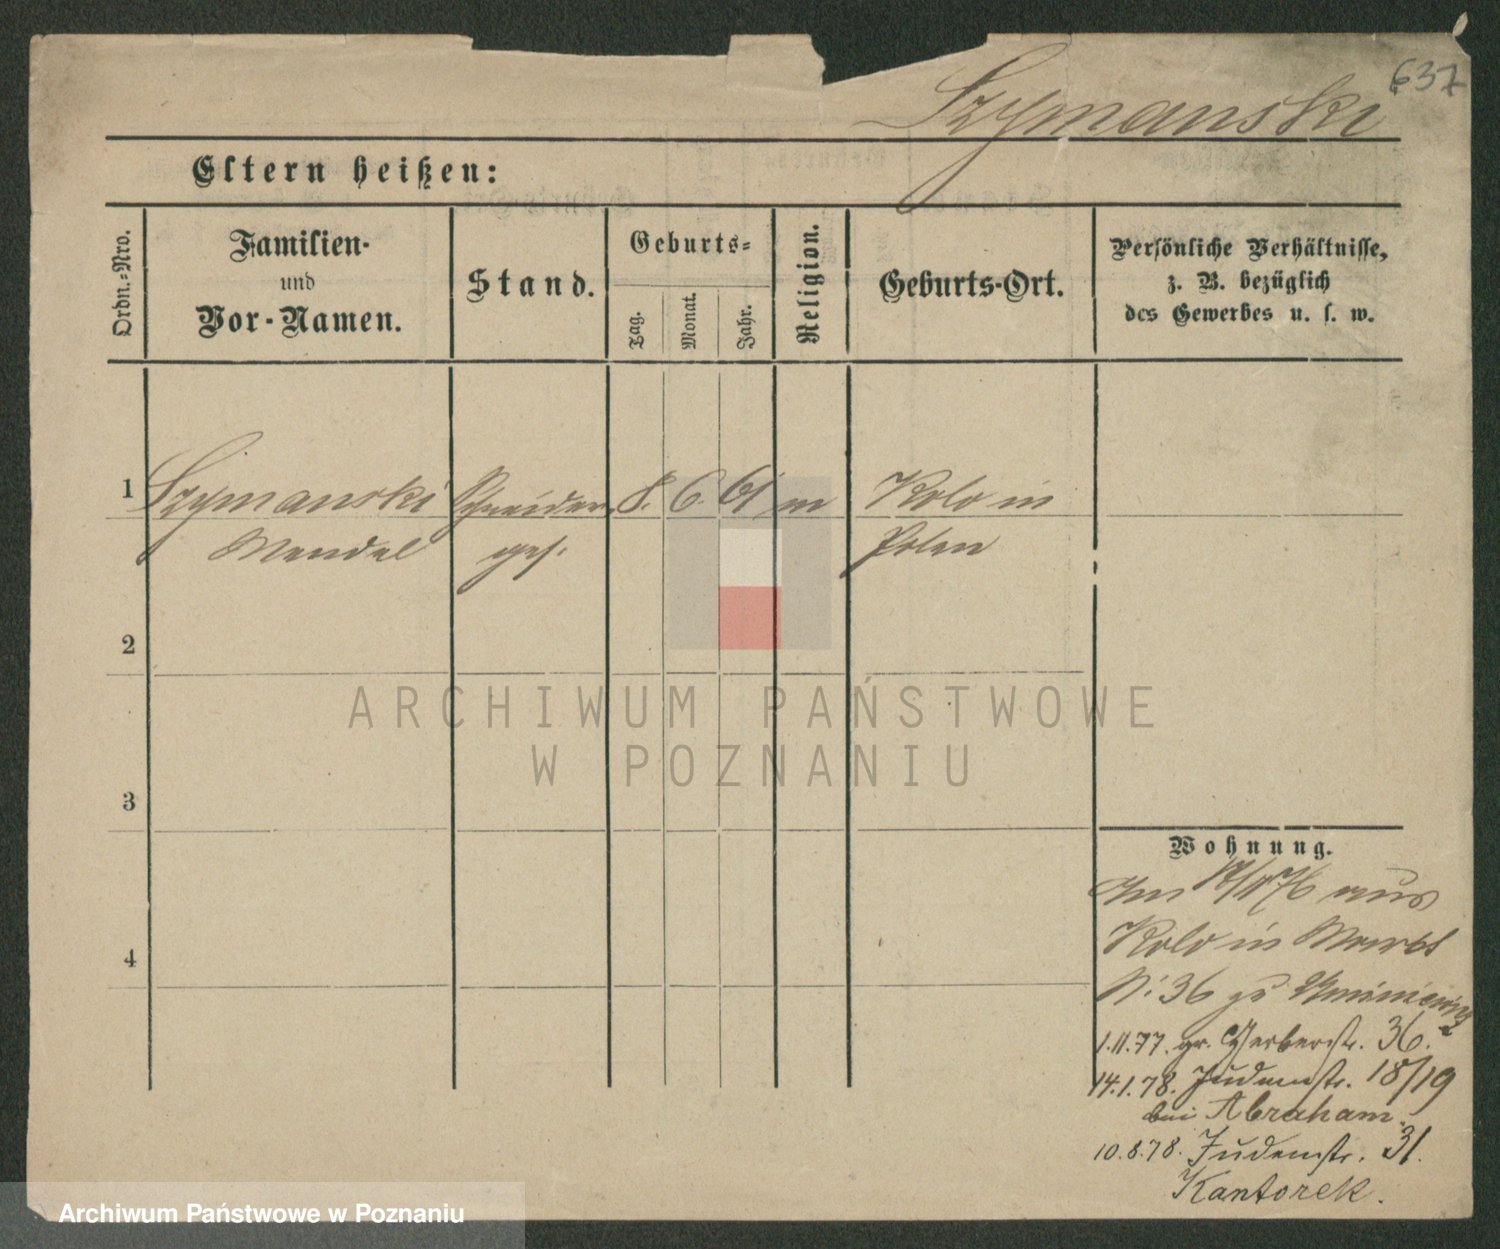 637
Szymanski
Eltern heißen:
Ordn.-Nro.
Familien-
und
Vor-Namen.
Stand.
Geburts-
Tag.
Monat.
Jahr.
Religion.
Geburts-Ort.
Persönliche Verhältnisse,
z. B. bezüglich
des Gewerbes u. s. w.
1 Szymanski Schneider- 8. 6. 61 m Kolo in
Mendel ges. Polen
2
3
4
ARCHIWUM PAŃSTWOWE
W POZNANIU
Wohnung.
aus
Kolo in
N: 36 zu
1.11.77. gr. Gerberstr. 36.
14.1.78. Judenstr. 18/19
bei Abraham.
10.8.78. Judenstr. 31.
Kantorek.
Archiwum Państwowe w Poznaniu